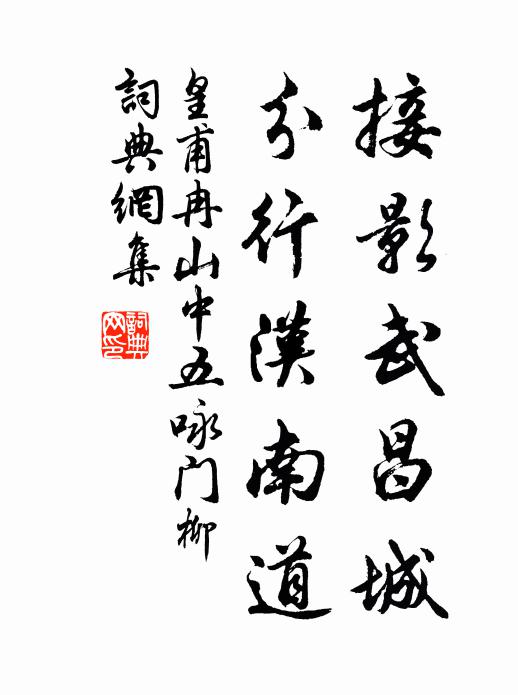 接影武昌城
分行漢南道
皇甫冉山中五咏门柳
詞典網集
詞典网印